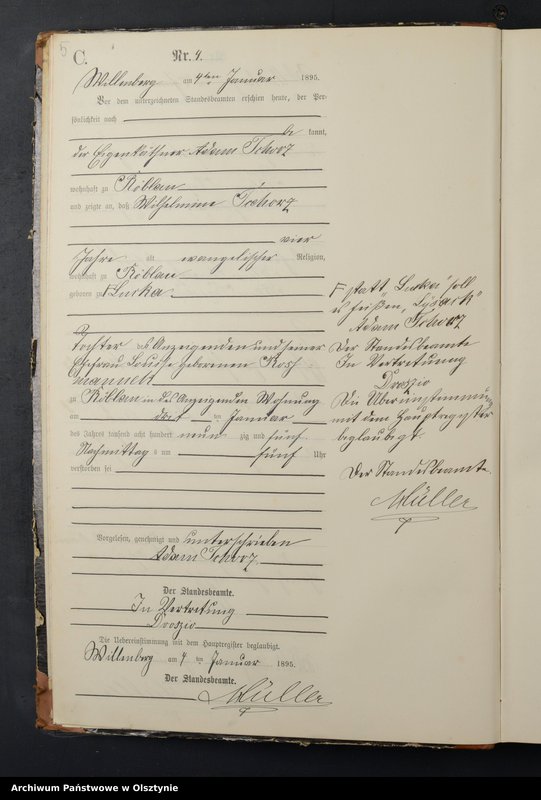 5
C.
Nr. 4.
Willenberg am 4ten Januar 1895.
Vor dem unterzeichneten Standesbeamten erschien heute, der Per-
sönlichkeit nach
be kannt,
der Eigenkäthner Adam Tchorz
wohnhaft zu Röblau
und zeigte an, daß Wilhelmine Tchorz
vier
Jahre alt, evangelischer Religion,
wohnhaft zu Röblau
geboren zu Luska
Tochter des Anzeigenden und seiner
Ehefrau Louise geborenen
zu Röblau in des Anzeigenden Wohnung
am drei ten Januar
des Jahres tausend acht hundert neun zig und fünf
Nachmittag s um fünf Uhr
verstorben sei
Vorgelesen, genehmigt und unterschrieben
Adam Tchorz
Der Standesbeamte.
In Vertretung
Droszio
Die Uebereinstimmung mit dem Hauptregister beglaubigt.
Willenberg am 4 ten Januar 1895.
Der Standesbeamte.
Müller
F statt „ soll
es heißen,
Adam Tchorz
Der Standesbeamte
In Vertretung
Droszio
Die Übereinstimmung
mit dem Hauptregister
beglaubigt
Der Standesbeamte.
Müller
Archiwum Państwowe w Olsztynie